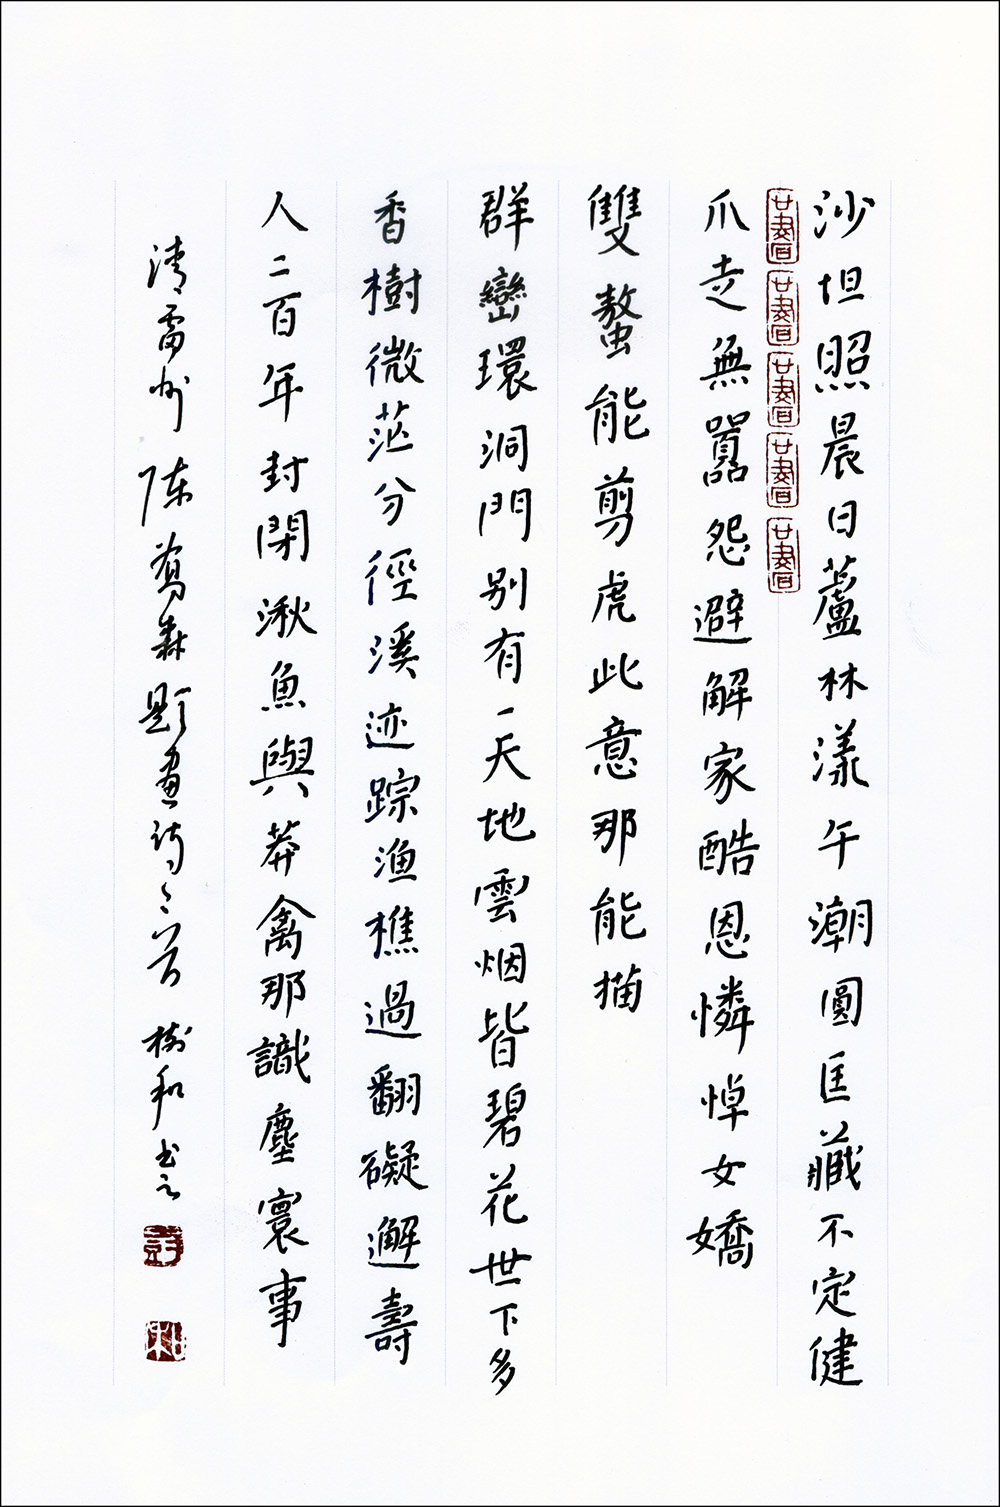 沙坦照晨日蘆林漾午潮圓匡藏不定健
爪走無囂怨避解家酷恩憐悼女嬌
雙螯能剪虎此意那能描
群巒環洞門别有一天地雲烟皆碧花世下多
香樹微茫分徑溪迹踪漁樵過翻礙邂壽
人二百年封閉湫魚與莽禽那識塵寰事
清雷州陈喬森題畫诗二首 樹和书